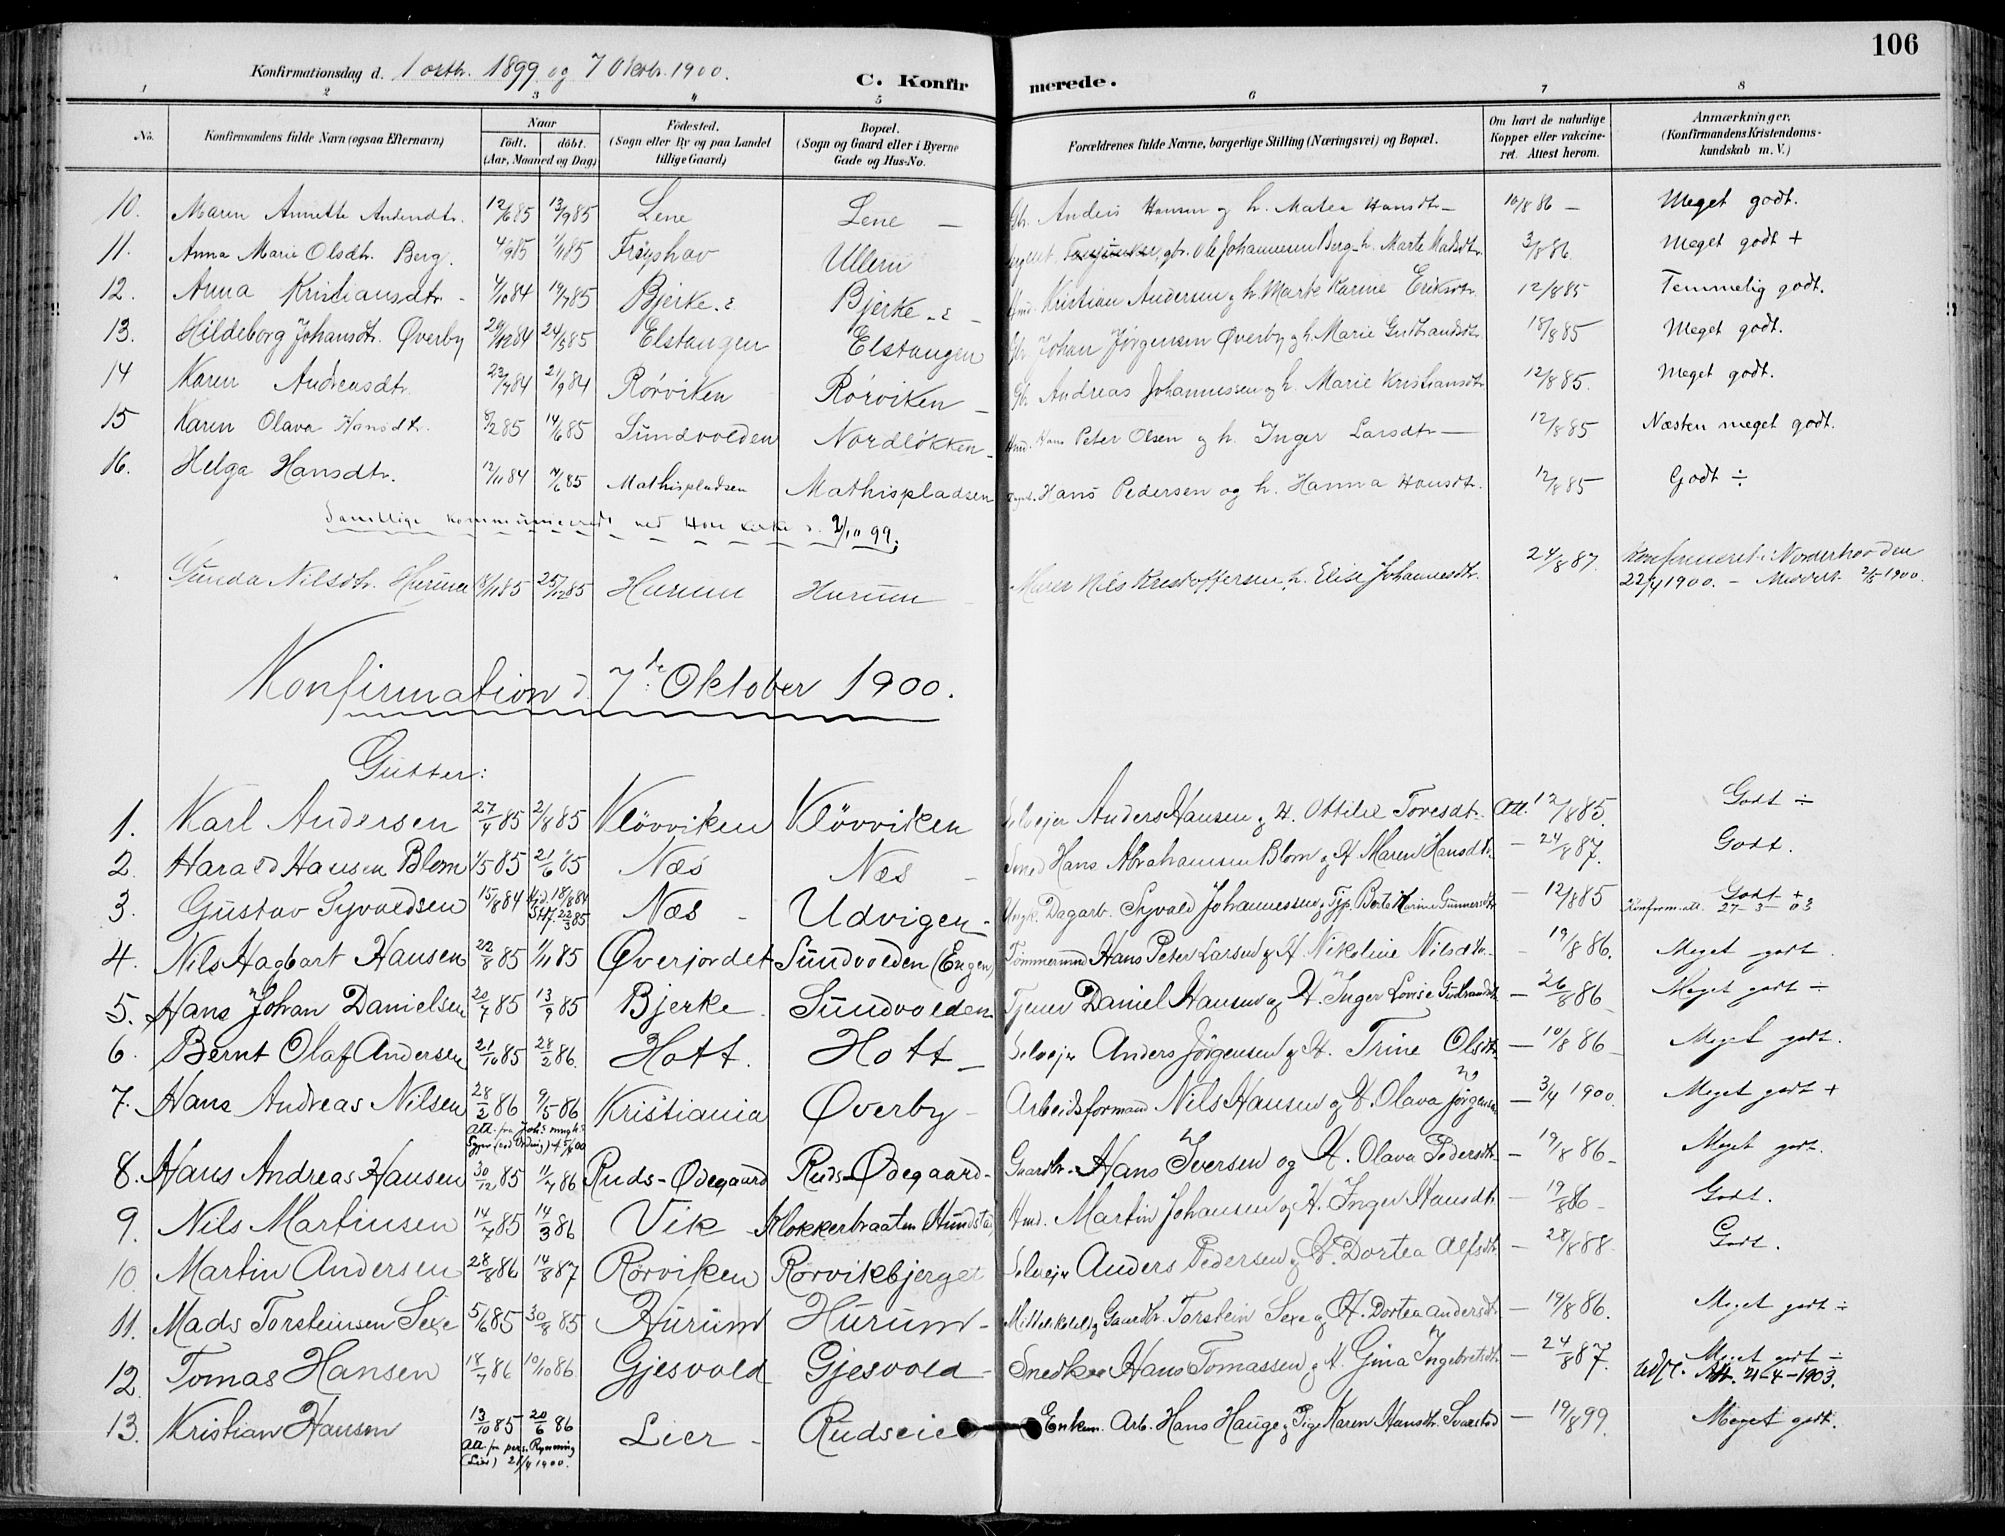 106
Konfirmationsdag d. 1 oktb. 1899 og 7 Oktbr. 1900.
C. Konfirmerede.
1 2 3 4 5 6 7 8
No. Konfirmandens fulde Navn (ogsaa Efternavn) Naar født. døbt. (Aar, Maaned og Dag) Fødested. (Sogn eller By og paa Landet tillige Gaard) Bopæl. (Sogn og Gaard eller i Byerne Gade og Hus-No. Forældrenes fulde Navne, borgerlige Stilling (Næringsvei) og Bopæl. Om havt de naturlige Kopper eller vakcineret. Attest herom. Anmærkninger. (Konfirmandens Kristendomskundskab m. V.)
10. Maren Annette Andersdtr. 12/6 85 13/9 85 Lene Lene Gbr. Anders Hansen og h. Matea Hansdtr 10/8 86 Meget godt.
11. Anna Marie Olsdtr. Berg. 4/9 85 1/11 85 Frøyshov Ullern gbr. Ole Johannesen Berg h. Marte Madsdtr. 3/8 86. Meget godt +
12. Anna Kristiansdtr. 4/10 84 19/7 85 Bjerke.e Bjerke.e Hmd. Kristian Andersen og h. Marte Karine Eriksdtr. 12/8 85 Temmelig godt.
13. Hildeborg Johansdtr. Øverby 29/12 84 24/5 85 Elstangen Elstangen Gbr. Johan Jørgensen Øverby og h. Marie Gulbrandsdtr. 18/8 85 Meget godt.
14 Karen Andreasdtr. 23/7 84 21/9 84 Rørviken Rørviken Gbr. Andreas Johannessen og h. Marie Kristiansdtr 12/8 85. Meget godt.
15 Karen Olava Hansdtr. 8/2 85 14/6 85 Sundvolden Nordløkken Hmd. Hans Peter Olsen og h. Inger Larsdtr 12/8 85 Næsten meget godt.
16. Helga Hansdtr. 12/11 84 14/6 85 Mathispladsen Mathispladsen Hans Pedersen og h. Hanna Hansdtr. 12/8 85 Godt ÷
Samtlige kommunicerede ved Hole kirke d. 2/10 99.
Gunda Nilsdtr. Hurum 18/11 85 25/12 85 Hurum Hurum Murer Nils Kristoffersen, h. Elise Johannesdtr. 24/8 87. Konfirmeret i Norderhov den
22/4 1900. – Meddelt 2/5 1900.
Konfirmation d. 7de Oktober 1900.
Gutter:
1. Karl Andersen 27/4 85 2/8 85 Kløvviken Kløvviken Selveier Anders Hansen og H. Ottilie Toresdt. Att. 12/8 85. Godt ÷
2. Harald Hansen Blom 1/5 85 21/6 85 Næs Næs Smed Hans Abrahamsen Blom og H. Maren Hansdtr. – 24/8 87. Godt.
3. Gustav Syvaldsen 15/8 84 Hjd. 18/8 84 Stf. 22/3 85 Næs Udvigen Ungk. Dagarb. Syvald Johannessen og Pige Berte Karine Gunnersdtr – 12/8 85 Godt +
Konfirm.att. 27–3–03
4. Nils Hagbart Hansen 22/8 85 1/11 85 Øverjordet Sundvolden (Engen) Tømmermd Hans Peter Larsen og H. Nikoline Nilsdtr. – 19/8 86. Meget godt.
5. Hans Johan Danielsen 20/7 85 13/9 85 Bjerke Sundvolden Tjener Daniel Hansen og H. Inger Lovise Gulbrandsdt – 26/8 86 Meget godt ÷
6. Bernt Olaf Andersen 21/10 85 28/2 86. Hott. Hott Selveier Anders Jørgensen og H. Trine Olsdtr – 10/8 86 Meget godt.
7. Hans Andreas Nilsen 28/2 86 9/5 86 Kristiania Øverby Arbeidsformand Nils Hansen og H. Olava Jørgensen – 3/4 1900. Meget godt +
8. Hans Andreas Hansen 30/12 85 11/4 86 Ruds-Ødegaard Ruds-Ødegaard Gaardbr. Hans Iversen og H. Olava Pedersdt – 19/8 86 Meget godt.
9. Nils Martinsen 14/7 85 14/3 86 Vik Klokkerbraaten Hundstad Hmd. Martin Johansen og H. Inger Hansdt – 19/8 86 Godt.
10. Martin Andersen 28/8 86 14/8 87 Rørviken Rørvikbjerget Selveier Anders Pedersen og H. Dortea Alfsdt – 28/8 88. Godt.
11. Mads Torsteinsen Sexe 5/6 85 30/8 85 Hurum Hurum Gaardbr. Torstein Sexe og H. Dortea Andersdt – 19/8 86. Meget godt ÷
12. Tomas Hansen 18/7 86 10/10 86 Gjesvold Gjesvold Snedker Hans Tomassen og H. Gina Ingebretsdt – 24/8 87. Meget godt ÷
Udfl. Att. 21–4–1903.
13. Kristian Hansen 13/10 85 20/6 86 Lier Rudseie Enkem. Arb. Hans Hauge og Pige Karen Hansdtr. Svarstad – 19/8 99. Meget godt.
Att. fra pers. Rynning
(Lier) 21/4 1900.